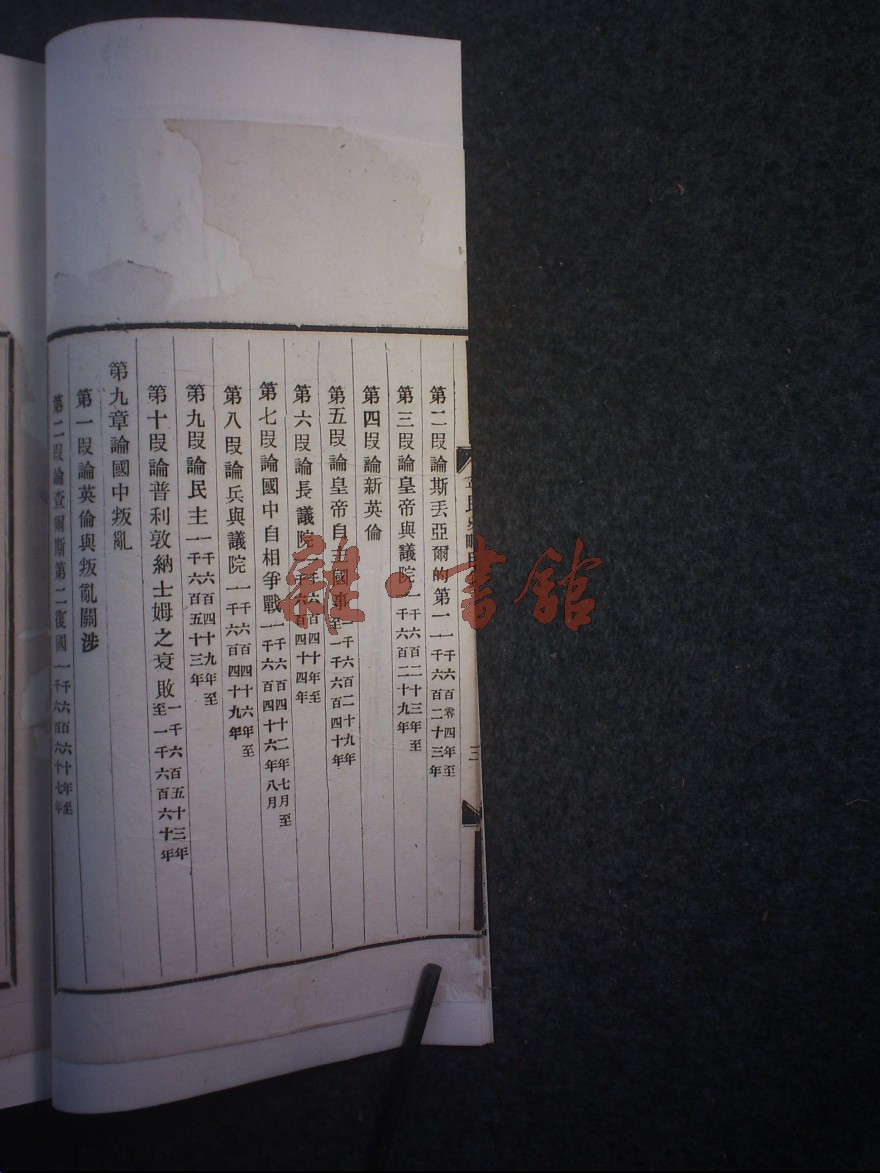 第二叚論斯丢亞爾的第一一千六百零四年至一千六百二十三年
第三叚論皇帝與議院一千六百二十三年至一千六百二十九年
第四叚論新英倫
第五叚論皇帝自主國事一千六百二十九年至一千六百四十年
第六叚論長議院一千六百四十年至一千六百四十四年
第七叚論國中自相爭戰一千六百四十二年七月至一千六百四十六年八月
第八叚論兵與議院一千六百四十六年至一千六百四十九年
第九叚論民主一千六百四十九年至一千六百五十三年
第十叚論普利敦納士姆之衰敗一千六百五十三年至一千六百六十年
第九章論國中叛亂
第一叚論英倫與叛亂關涉
第二叚論查爾斯第二復國一千六百六十年至一千六百六十七年
三
雜·書館